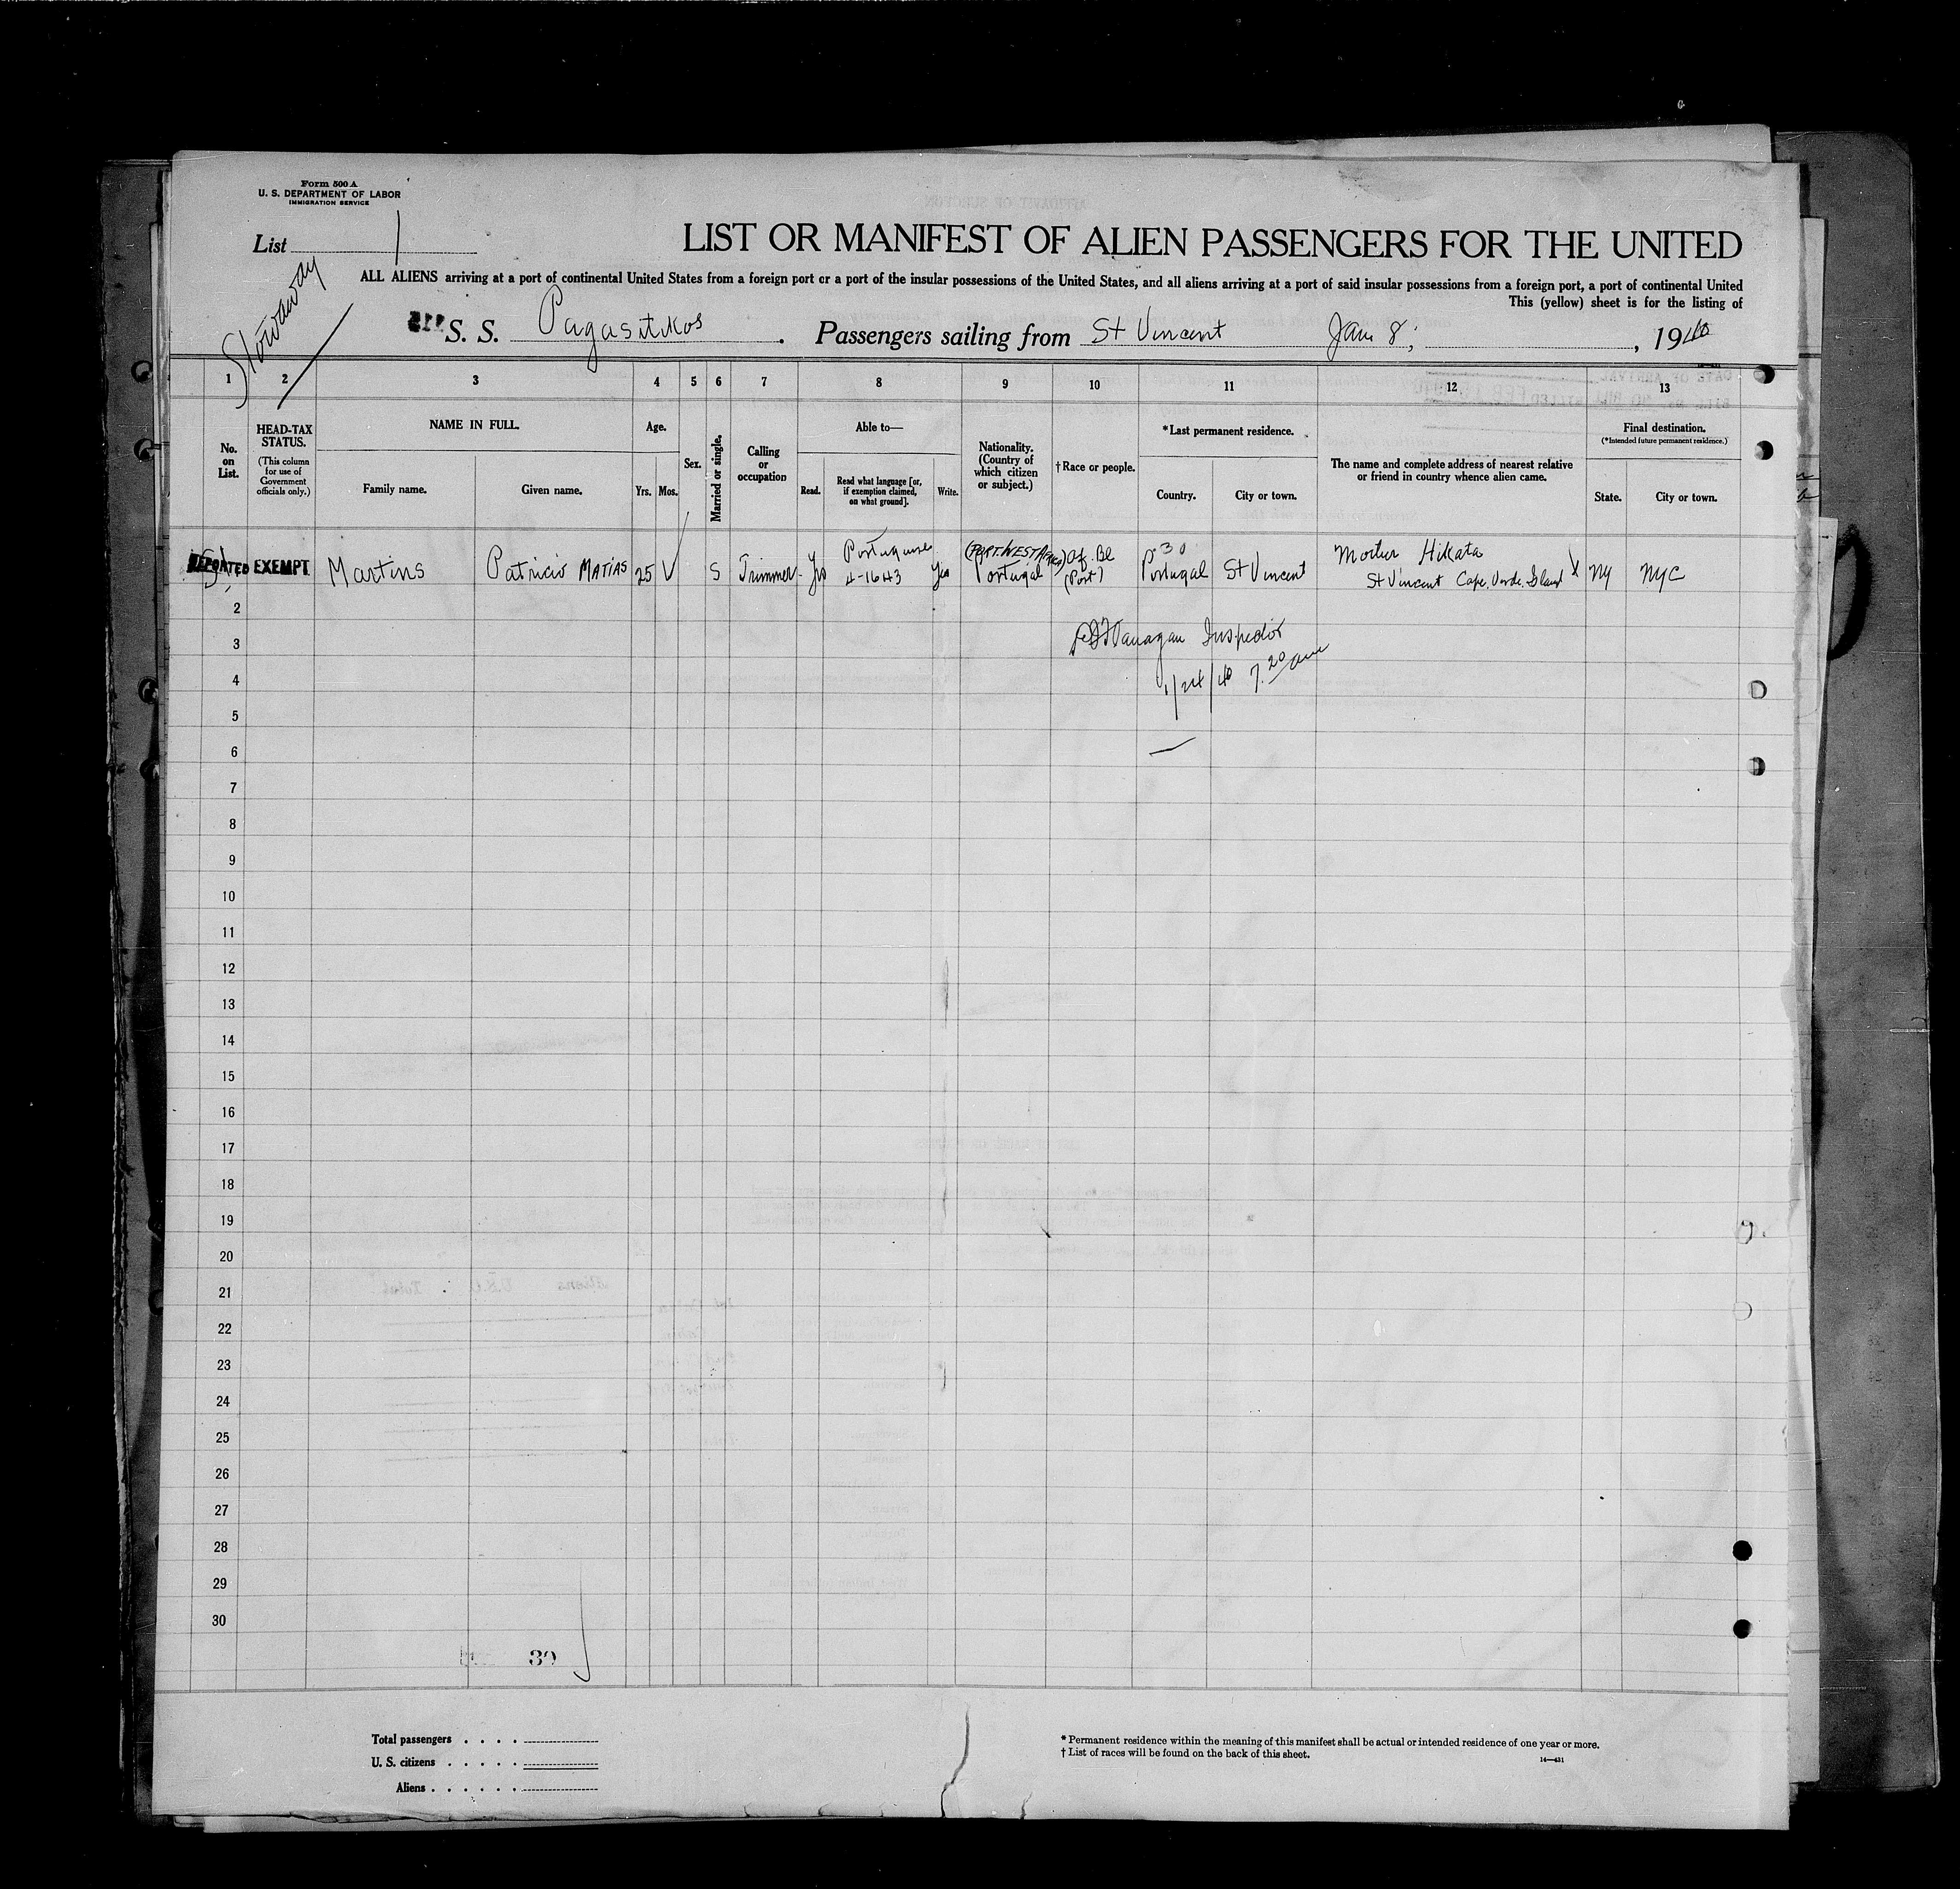 Form 500 A
U. S. DEPARTMENT OF LABOR
IMMIGRATION SERVICE
List 1
Stowaway
LIST OR MANIFEST OF ALIEN PASSENGERS FOR THE UNITED
ALL ALIENS arriving at a port of continental United States from a foreign port or a port of the insular possessions of the United States, and all aliens arriving at a port of said insular possessions from a foreign port, a port of continental United
This (yellow) sheet is for the listing of
S. S. Pagasitikos . Passengers sailing from St Vincent Jan 8, , 1940
1 2 3 4 5 6 7 8 9 10 11 12 13
No. on List.
HEAD-TAX STATUS.
(This column for use of Government officials only.)
NAME IN FULL.
Family name.
Given name.
Age.
Yrs. Mos.
Sex.
Married or single.
Calling or occupation
Able to—
Read.
Read what language [or, if exemption claimed, on what ground].
Write.
Nationality. (Country of which citizen or subject.)
†Race or people.
*Last permanent residence.
Country.
City or town.
The name and complete address of nearest relative or friend in country whence alien came.
Final destination.
(*Intended future permanent residence.)
State.
City or town.
DEPORTED EXEMPT Martins Patricio MATIAS 25 S Trimmer Yes Portuguese 4-1643 Yes (PORT. WEST AFRICA) Portugal Af. Bl (Port) 30 Portugal St Vincent Mother Hikata
St Vincent Cape Verde Island NY NYC
2
3 Flanagan Inspector
4 1/24/40 7.20 am
5
6
7
8
9
10
11
12
13
14
15
16
17
18
19
20
21
22
23
24
25
26
27
28
29
30
30
Total passengers
U. S. citizens
Aliens
* Permanent residence within the meaning of this manifest shall be actual or intended residence of one year or more.
† List of races will be found on the back of this sheet.
14—431